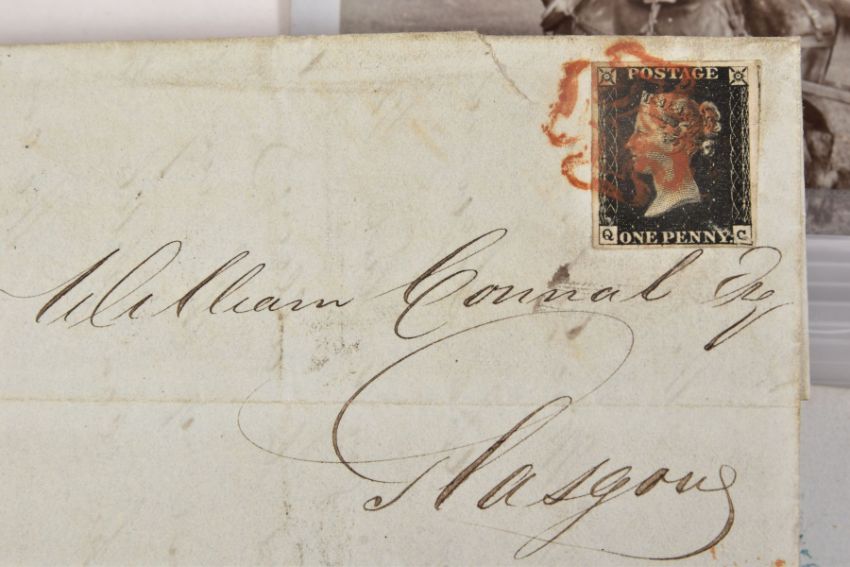 POSTAGE
Q ONE PENNY. C
William Connal Esq
Glasgow